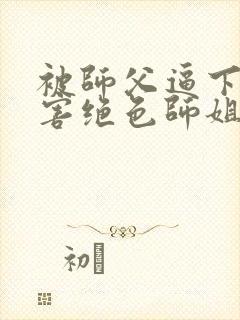 被師父逼下
害绝色師姐
初